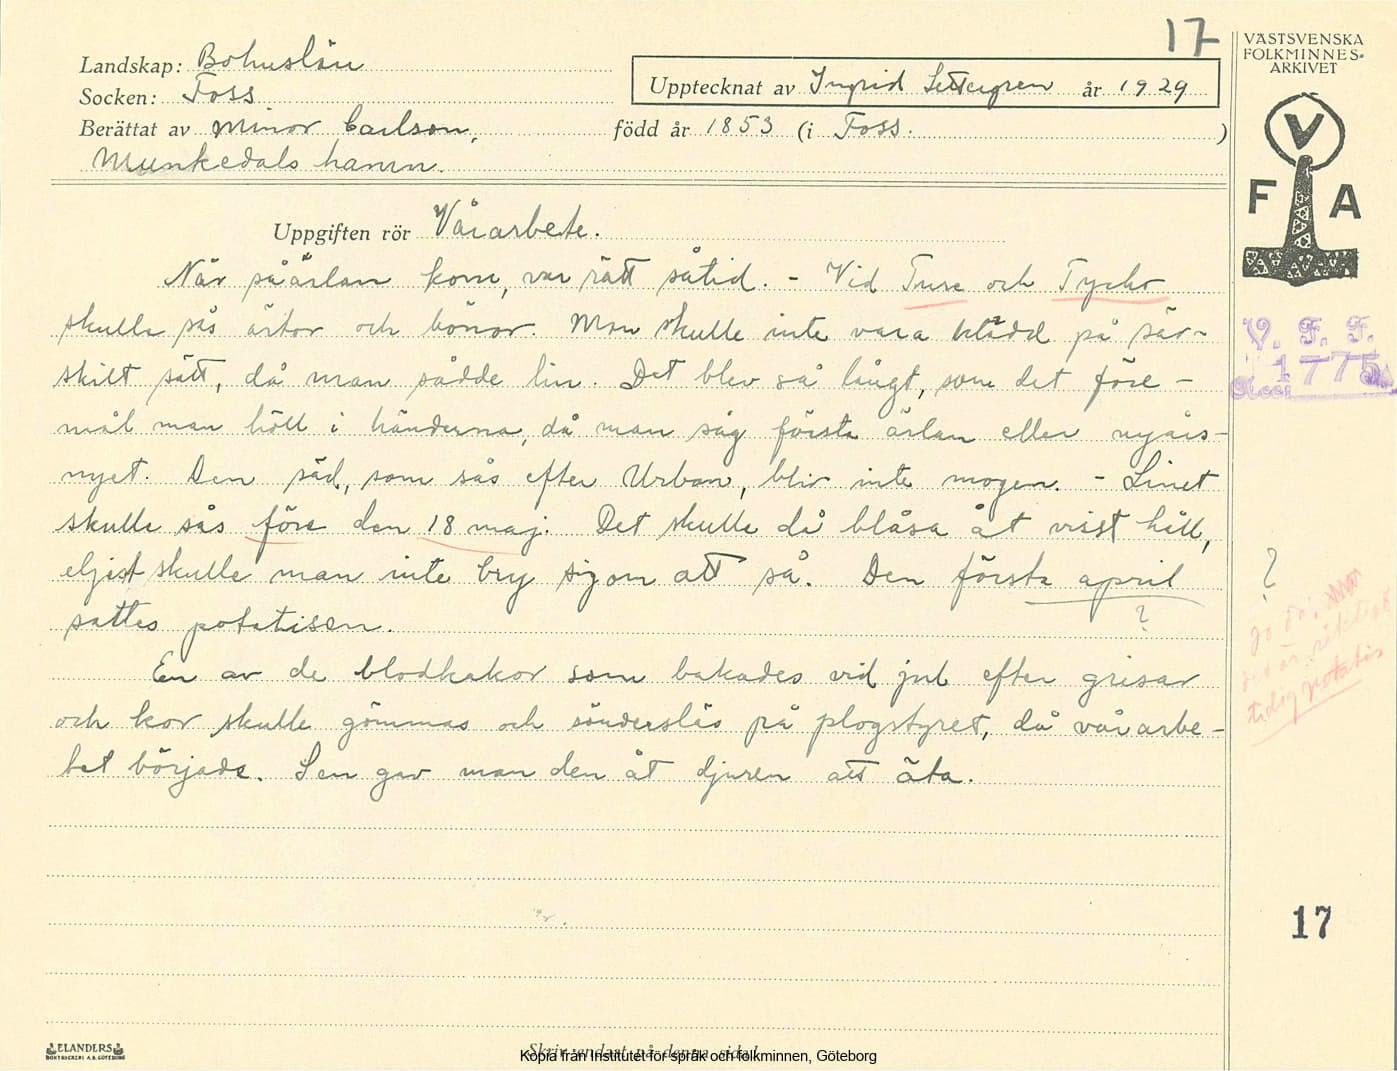 17
VÄSTSVENSKA
FOLKMINNES-
ARKIVET
Landskap: Bohuslän
Upptecknat av Ingrid år 1929
Socken: Foss
Berättat av Minor Carlson, född år 1853 (i Foss. )
Munkedals hamn.
V
F A
Uppgiften rör Vårarbete.
När såärlan kom, var rätt såtid. - Vid Ture och Tycho
skulle sås ärtor och bönor. Man skulle inte vara klädd på sär-
skilt sätt, då man sådde lin. Det blev så långt, som det före-
mål man höll i händerna, då man såg första ärlan eller nyårs-
nyet. Den säd, som sås efter Urban, blir inte mogen. - Linet
skulle sås före den 18 maj. Det skulle då blåsa åt visst håll,
eljest skulle man inte bry sig om att så. Den första april
sattes potatisen. ?
En av de blodkakor som bakades vid jul efter grisar
och kor skulle gömmas och sönderslås på plogstyret, då vårarbe-
tet började. Sen gav man den åt djuren att äta.
V. F. F.
1775
Acc:
?
jo då!
det är riktigt
tidig potatis
17
ELANDERS
BOKTRYCKERI A.B. GÖTEBORG
Skriv endast på denna sida!
Kopia från Institutet för språk och folkminnen, Göteborg